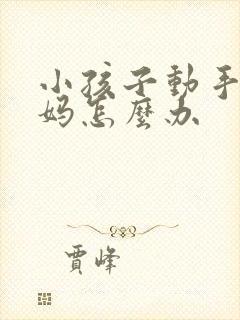 小孩子動手
妈怎麼办
賈峰